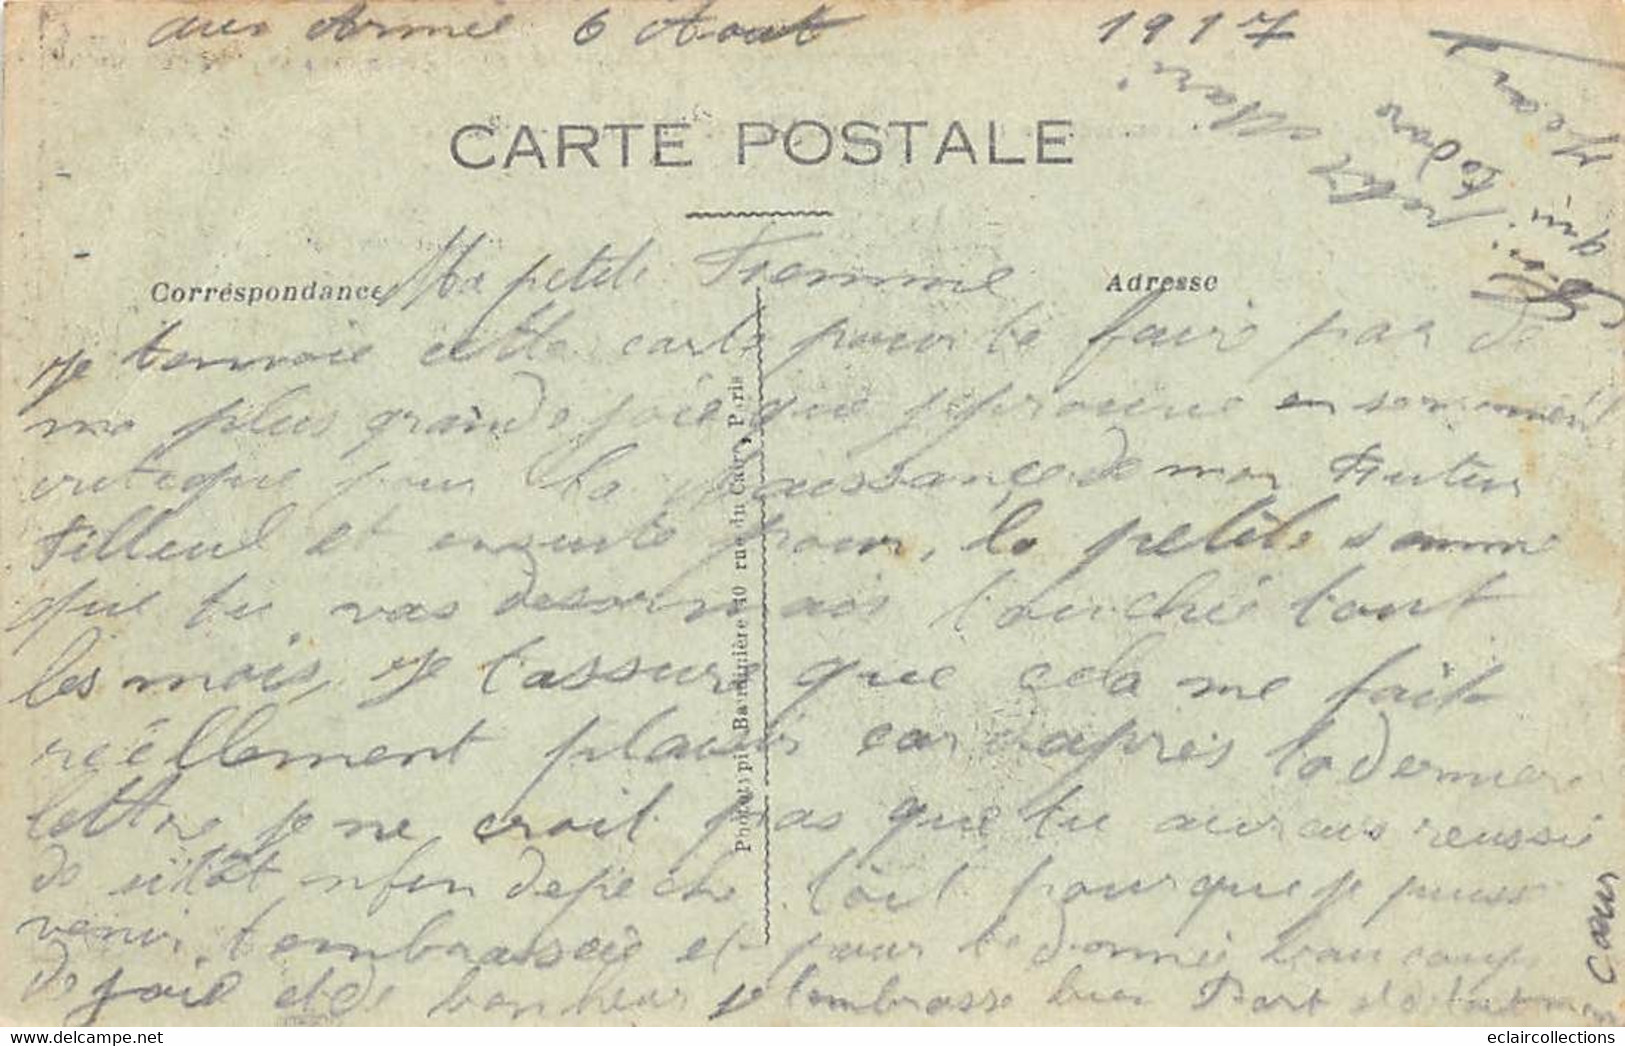 aux Armée 6 Aout 1917
CARTE POSTALE
Correspondance
Adresse
Ma petite Femme
Je tenvoie cette carte pour te faire par de
ma plus grande joie que j'eprouve en se moment
critique pour la Naissance de mon Futur
Filleul et ensuite pour la petite somme
que tu vas desormais touché tout
les mois, Je t'assure que cela me fait
réellement plaisir car d'après ta derniere
lettre je ne croit pas que tu aurais reussie
de sitôt enfin depeche toit pour que je puisse
venir t'embrassée et pour te donnée beaucoup
de joie et de bonheur je t'embrasse bien Fort et de tout mon
Cœur
Ton Mari
qui
Jean
Phototypie Baudinière 40 rue du Caire, Paris
eclaircollections